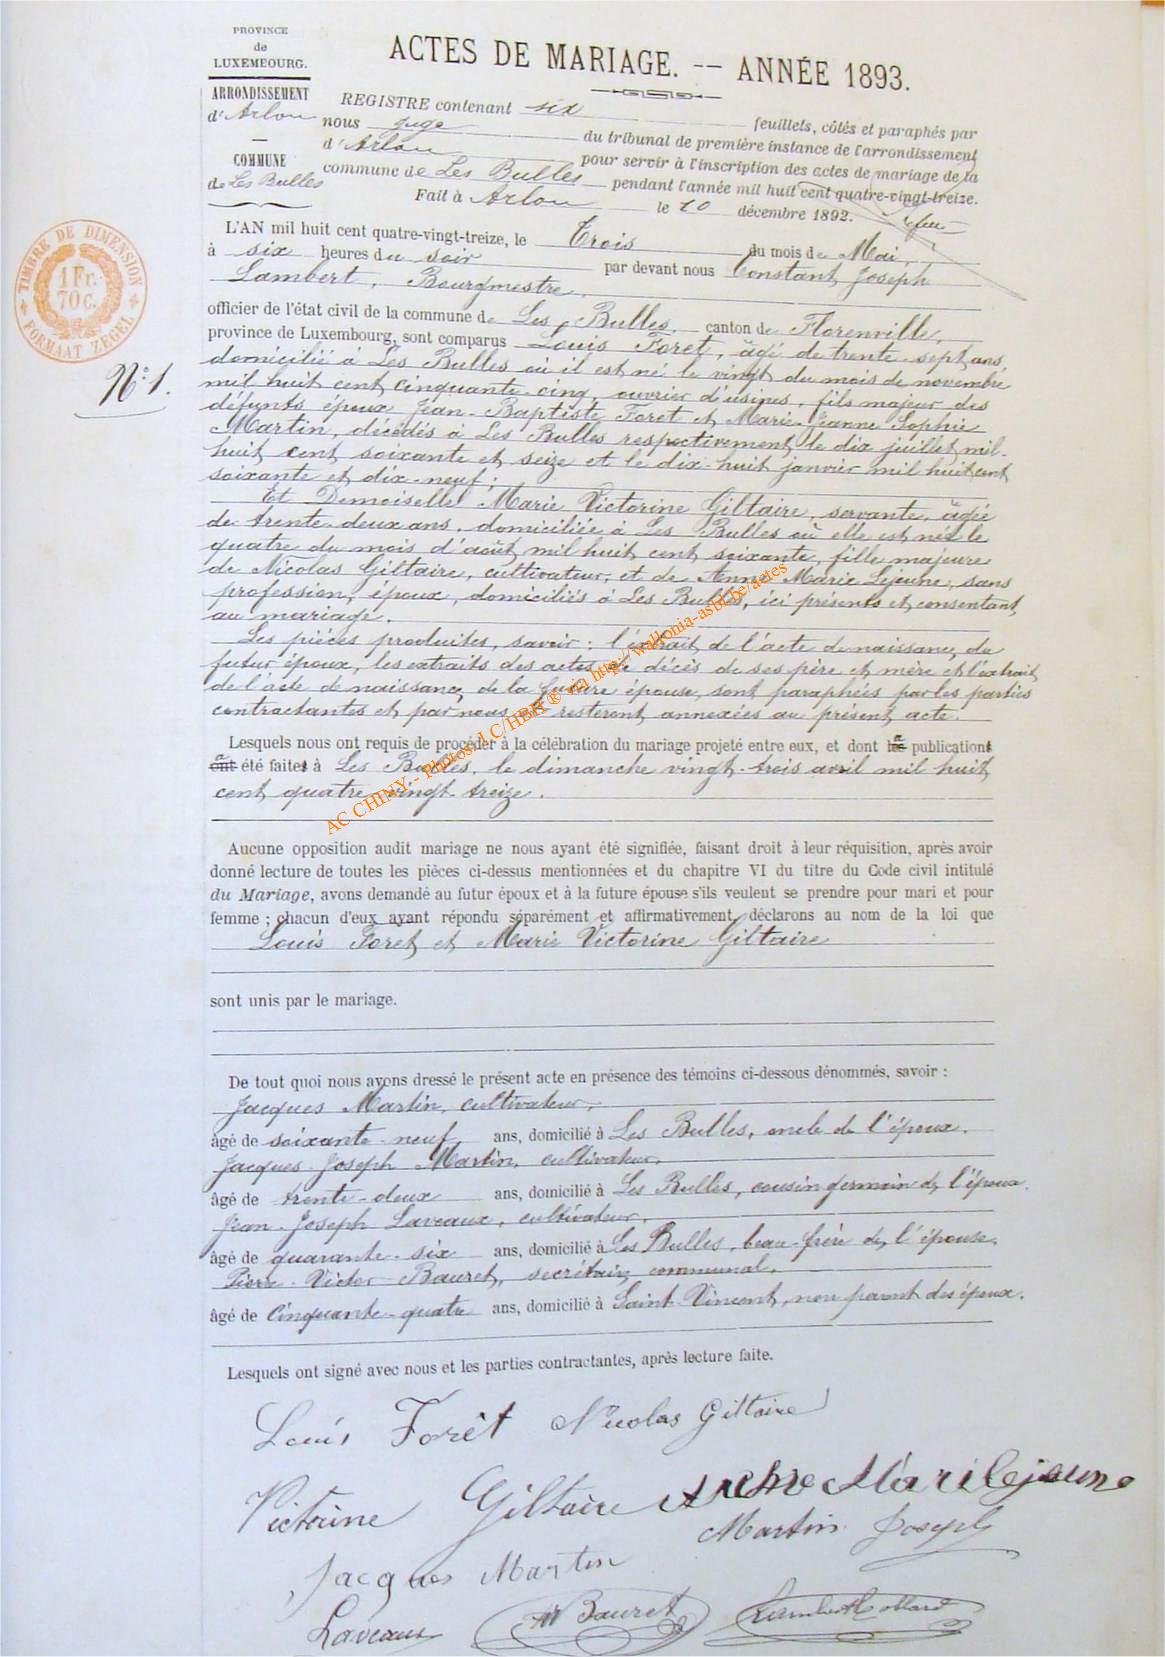 PROVINCE
de
LUXEMBOURG.
ARRONDISSEMENT
d'Arlon
COMMUNE
de Les Bulles
ACTES DE MARIAGE. -- ANNÉE 1893.
REGISTRE contenant six feuillets, côtés et paraphés par
nous juge du tribunal de première instance de l'arrondissement
d'Arlon pour servir à l'inscription des actes de mariage de la
commune de Les Bulles pendant l'année mil huit cent quatre-vingt-treize.
Fait à Arlon le 10 décembre 1892.
TIMBRE DE DIMENSION
1 Fr.
70 c.
FORMAAT ZEGEL
No 1.
L'AN mil huit cent quatre-vingt-treize, le Trois du mois de Mai,
à six heures du soir par devant nous Constant Joseph
Lambert, Bourgmestre,
officier de l'état civil de la commune de Les Bulles, canton de Florenville,
province de Luxembourg, sont comparus Louis Foret, âgé de trente-sept ans,
domicilié à Les Bulles où il est né le vingt du mois de novembre
mil huit cent cinquante-cinq, ouvrier d'usines, fils majeur des
défunts époux Jean-Baptiste Foret et Marie-Jeanne Sophie
Martin, décédés à Les Bulles respectivement le dix juillet mil-
huit cent soixante et seize et le dix-huit janvier mil huit cent
soixante et dix-neuf;
Et Demoiselle Marie Victorine Giltaire, servante, âgée
de trente-deux ans, domiciliée à Les Bulles où elle est née le
quatre du mois d'août mil huit cent soixante, fille majeure
de Nicolas Giltaire, cultivateur, et de Anne Marie Lejeune, sans
profession, époux, domiciliés à Les Bulles, ici présents et consentant
au mariage.
Les pièces produites, savoir: l'extrait de l'acte de naissance du
futur époux, les extraits des actes de décès de ses père et mère et l'extrait
de l'acte de naissance de la future épouse, sont paraphées par les parties
contractantes et par nous et resteront annexées au présent acte.
Lesquels nous ont requis de procéder à la célébration du mariage projeté entre eux, et dont la publication
a été faite à Les Bulles, le dimanche vingt-trois avril mil huit
cent quatre-vingt-treize.
AC CHINY - Photos J.C/HBH ® via http://wallonia-asbl.be/actes
Aucune opposition audit mariage ne nous ayant été signifiée, faisant droit à leur réquisition, après avoir
donné lecture de toutes les pièces ci-dessus mentionnées et du chapitre VI du titre du Code civil intitulé
du Mariage, avons demandé au futur époux et à la future épouse s'ils veulent se prendre pour mari et pour
femme ; chacun d'eux ayant répondu séparément et affirmativement, déclarons au nom de la loi que
Louis Foret et Marie Victorine Giltaire
sont unis par le mariage.
De tout quoi nous avons dressé le présent acte en présence des témoins ci-dessous dénommés, savoir :
Jacques Martin, cultivateur,
âgé de soixante-neuf ans, domicilié à Les Bulles, oncle de l'époux.
Jacques-Joseph Martin, cultivateur,
âgé de trente-deux ans, domicilié à Les Bulles, cousin germain de l'époux.
Jean-Joseph Laveaux, cultivateur,
âgé de quarante-six ans, domicilié à Les Bulles, beau-frère de l'épouse.
Pierre-Victor Bauret, secrétaire communal,
âgé de Cinquante-quatre ans, domicilié à Saint-Vincent, non parent des époux.
Lesquels ont signé avec nous et les parties contractantes, après lecture faite.
Louis Forêt Nicolas Giltaire
Victorine Giltaire Anne Marie lejeune
Martin Joseph
Jacques Martin
Laveaux Bauret Lambert